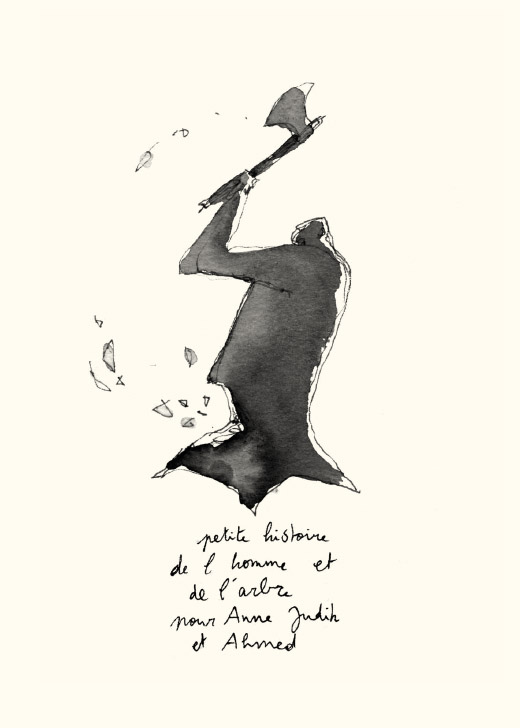 petite histoire
de l homme et
de l'arbre
pour Anne Judith
et Ahmed